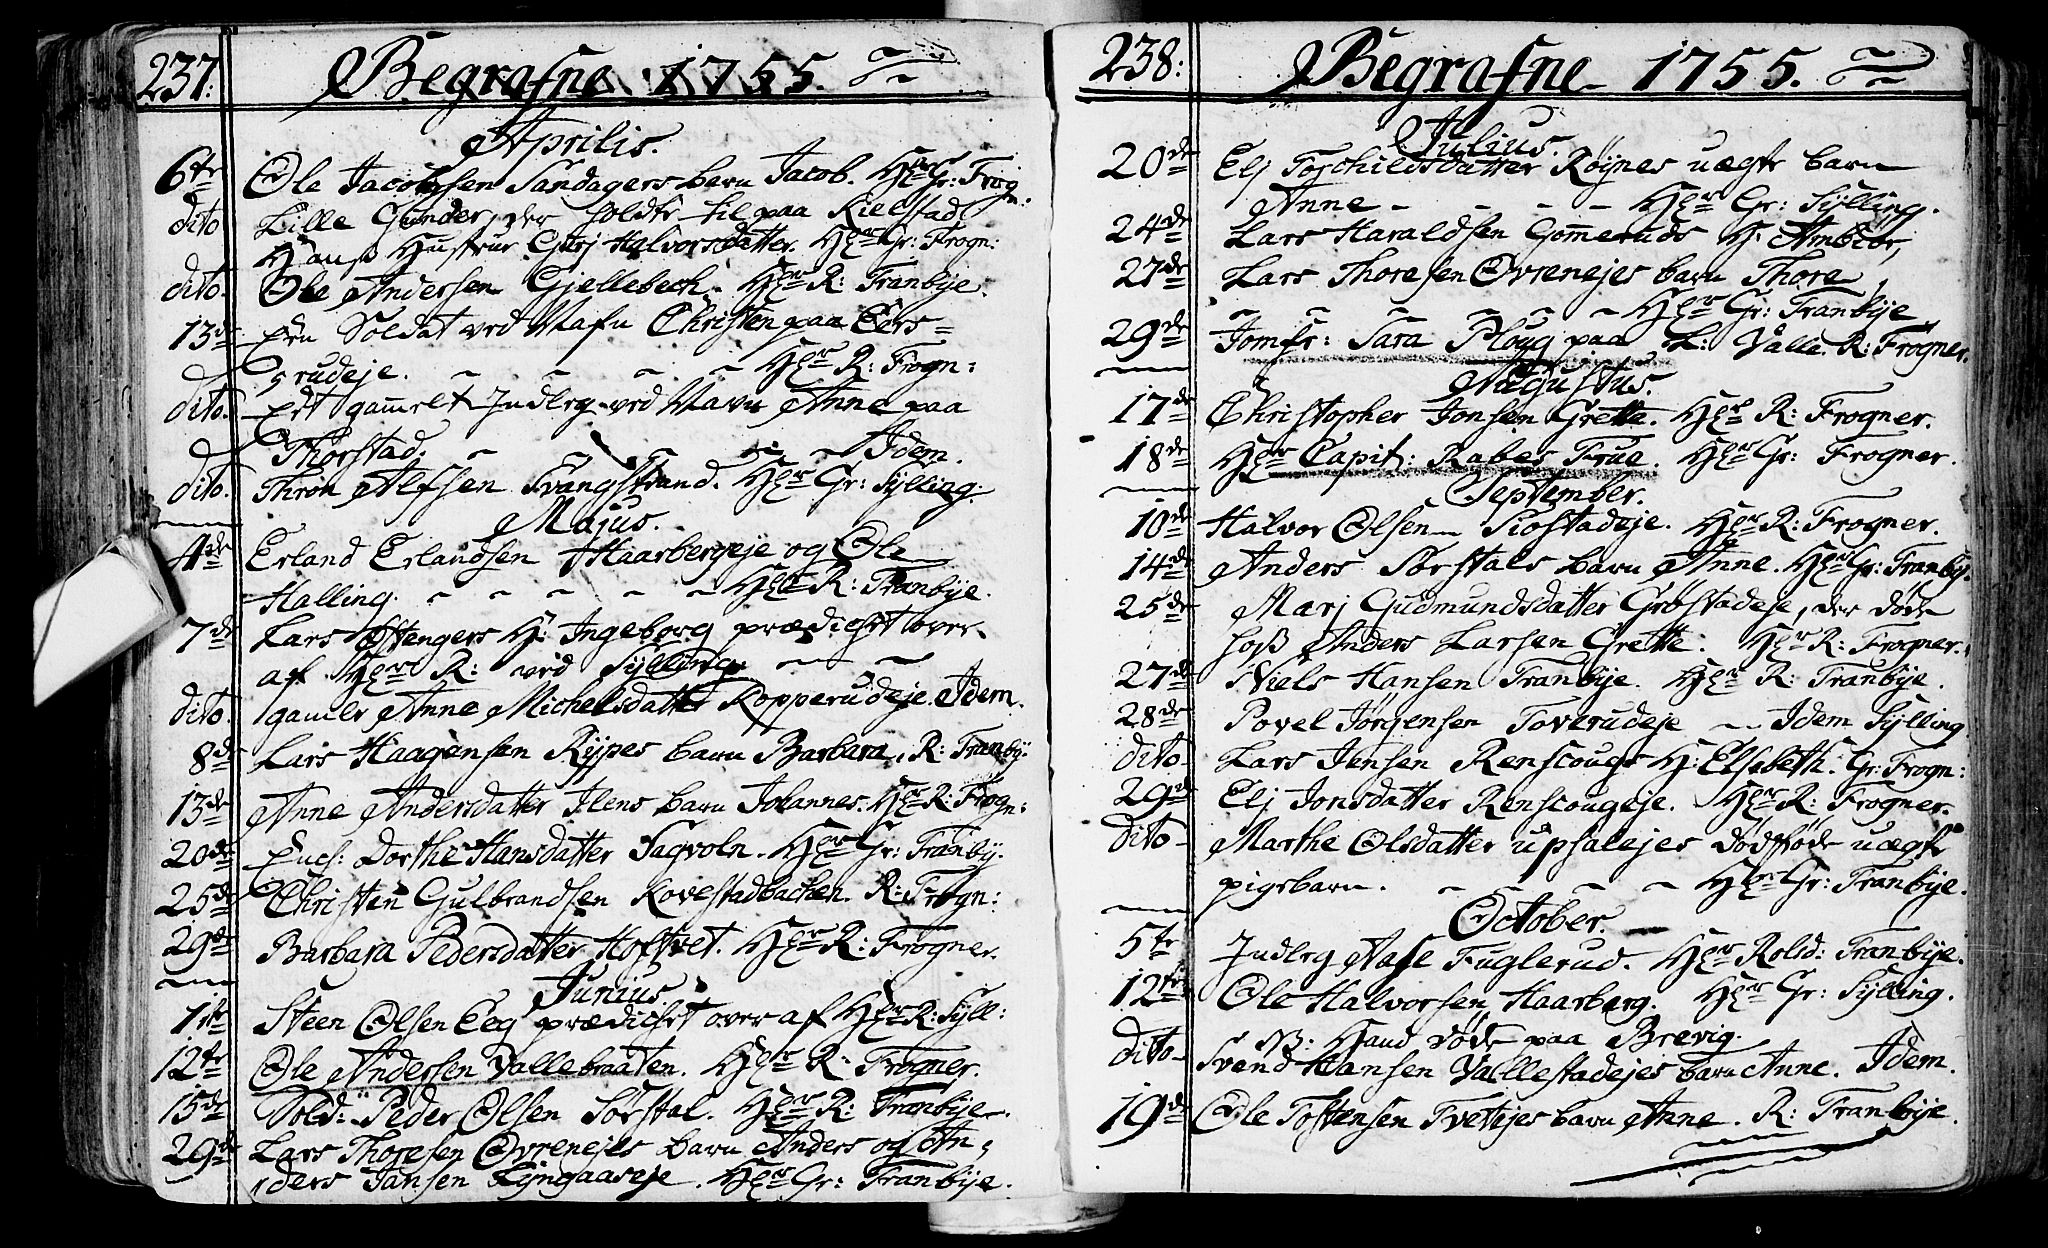 237.
Begrafne 1755.
Aprilis.
6te Ole Jacobsen Sandagers barn Jacob. Her Gr: Frogn:
dito Lille Gunder, der holdtes til paa Kielstad
Hanss Hustrue Guri Halvorsdatter. Her Gr: Frogn:
dito. Ole Andersen Gjellebech. Her R: Tranbÿe.
13de Een Soldat ved Nafn Christen paa Eers=
rudeje. Her R: Frogn:
dito. Eet gammelt Indleg ved Navn Anne paa
Thorstad. Idem.
dito. Thron Alfsen Svangstrand. Her Gr: Sylling.
Majus.
4de Erland Erlandsen Haarbergeje og Ole
Halling. Her R: Tranbÿe.
7de Lars Østengers H: Ingeborg prædicket over
af Her R: ved Sylling.
dito. gamle Anne Michelsdatter Kopperudeje. Idem.
8de Lars Haagensen Rÿpes barn Barbara. R: Tranbÿ.
13de Anne Andersdatter Ilens barn Johannes. Her R: Frogn:
20de Ench: Dorthe Hansdatter Sagvoln. Her Gr: Tranbÿ.
25de Christen Gulbrandsen Kovestadbachen. R: Frogn:
29de Barbara Pedersdatter Hoftvet. Her R: Frogner.
Junius.
1ste Steen Olsen Eeg prædicket over af Her R: Syll:
12te Ole Andersen Vallebraaten. Her R: Frogner.
15de Sold: Peder Olsen Sørstal. Her R: Tranbÿe.
29de Lars Thoresen Øvrenejes barn Anders og An=
ders Jansen Lÿngaaseje. Her Gr: Tranbÿe.
238:
Begrafne 1755.
Julius.
20de Elj Torchildsdatter Røynes uægte barn
Anne - - - - Her Gr: Sylling.
24de Lars Haraldsen Gommeruds H. Ambiør,
27de Lars Thoresen Øvrenejes barn Thore,
Her Gr: Tranbÿe
29de Jomfr: Sara Ploug paa L: Valle. R: Frogner.
Augustus.
17de Christopher Jonsen Grette. Her R: Frogner.
18de Her Capit: Rabes Frue. Her Gr: Frogner.
September.
10de Halvor Olsen Siostadeje. Her R: Frogner.
14de Anders Sørstals barn Anne. Her Gr: Tranbÿ.
25de Marj Gudmundsdatter Grøstadeje, der døde
hoss Anders Larsen Grette. Her R: Frogner.
27de Niels Hansen Tranbÿe. Her R: Tranbÿe.
28de Povel Jørgensen Toverudeje - Idem Sylling
dito Lars Jensen Renscougs H: Elsebeth. Gr: Frogn:
29de Elj Jonsdatter Renscougeje. Her R: Frogner.
dito Marthe Olsdatter upsalejes dødfødde uægte
pigebarn. Her Gr: Tranbÿe.
October.
5te Indleg Aase Fuglerud. Her Rold: Tranbÿe.
12te Ole Halvorsen Haarberg. Her Gr: Sylling.
NB: Hand døde paa Brevig.
dito Svend Hansen Vallestadejes barn Anne. Idem.
19de Ole Tostensen Tvetejes barn Anne. R: Tranbÿe.